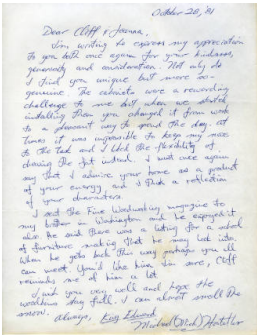 October 28, 81
Dear Cliff & Joanna
I'm writing to express my appreciation
to you both once again for your kindness,
generosity and consideration. Not only do
I find you unique but more so-
genuine. The cabinets were a rewarding
challenge to me but when we started
installing them you changed it from work
to a pleasant way to spend the day at
times it was impossible to keep my nose
to the task and I liked the flexibility of
chasing the dot instead. I must once again
say that I admire your home as a product
of your energy, and I think a reflection
of your characters.
I sent the Fine Woodworking magazine to
my brother in Washington and he enjoyed it
also he said there was a listing for a school
of furniture making that he may look into
when he gets back this way perhaps you all
can meet. You'd like him I'm sure, Cliff
reminds me of him a lot
I wish you very well and hope the
weather stay full. I can almost smell the
snow.
always,
Michael (Mich)